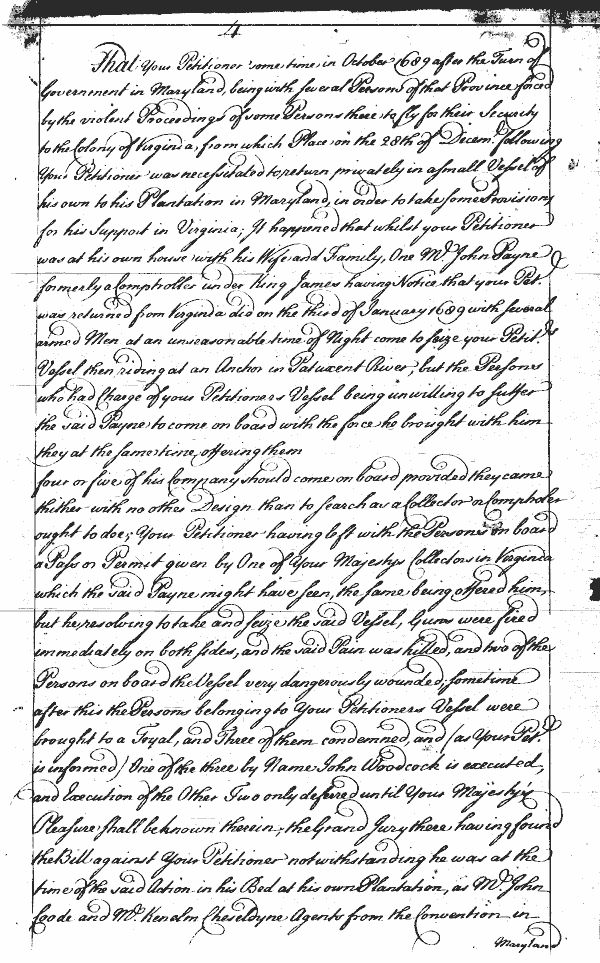 4
That Your Petitioner some time in October 1689 after the Turn of
Government in Maryland, being with several Persons of that Province forced
by the violent Proceedings of some Persons there to fly for their Security
to the Colony of Virginia, from which Place on the 28th of Decem.r following
Your Petitioner was necessitated to return privately in a small Vessel of
his own to his Plantation in Maryland, in order to take some Provisions
for his Support in Virginia; It happened that whilst your Petitioner
was at his own house with his Wife and Family, One Mr. John Payne
formerly a Comptroller under King James having Notice that your Pet.r
was returned from Virginia did on the third of January 1689 with several
armed Men at an unseasonable time of Night come to seize your Petit.rs
Vessel then riding at an Anchor in Patuxent River, but the Persons
who had Charge of your Petitioners Vessel being unwilling to suffer
the said Payne to come on board with the force he brought with him
they at the same time offering them
four or five of his Company should come on board provided they came
thither with no other Design than to search as a Collector or Comptroler
ought to doe; Your Petitioner having left with the Persons on board
a Pass or Permit given by One of Your Majestys Collectors in Virginia
which the said Payne might have seen, the same being offered him,
but he, resolving to take and seize the said Vessel, Guns were fired
immediately on both sides, and the said Pain was killed, and two of the
Persons on board the Vessel very dangerously wounded; sometime
after this the Persons belonging to Your Petitioners Vessel were
brought to a Tryal, and Three of them condemned, and (as Your Pet.r
is informed) One of the three by Name John Woodcock is executed,
and Execution of the Other Two only deferred until Your Majesty's
Pleasure shall be known therein; the Grand Jury there having found
the Bill against Your Petitioner notwithstanding he was at the
time of the said Action in his Bed at his own Plantation, as Mr. John
Coode and Mr. Kenelm Cheseldyne Agents from the Convention in
Maryland